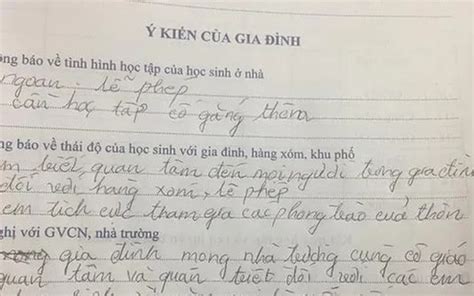 Ý KIẾN CỦA GIA ĐÌNH
ông báo về tình hình học tập của học sinh ở nhà
ngoan. lễ phép
cần học tập cố gắng thêm
ng báo về thái độ của học sinh với gia đình, hàng xóm, khu phố
m biết quan tâm đến mọi người trong gia đìn
đối với hàng xóm, lễ phép
em tích cực tham gia các phong trào của thôn
nghị với GVCN, nhà trường
gia đình mong nhà trường cùng cô giáo
quan tâm và quán triệt đối với các em